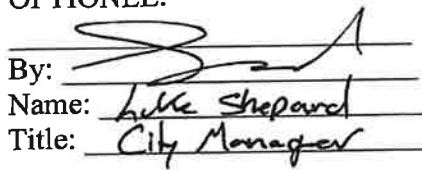 OPTIONEE:
By:
Name: Luke Shepard
Title: City Manager